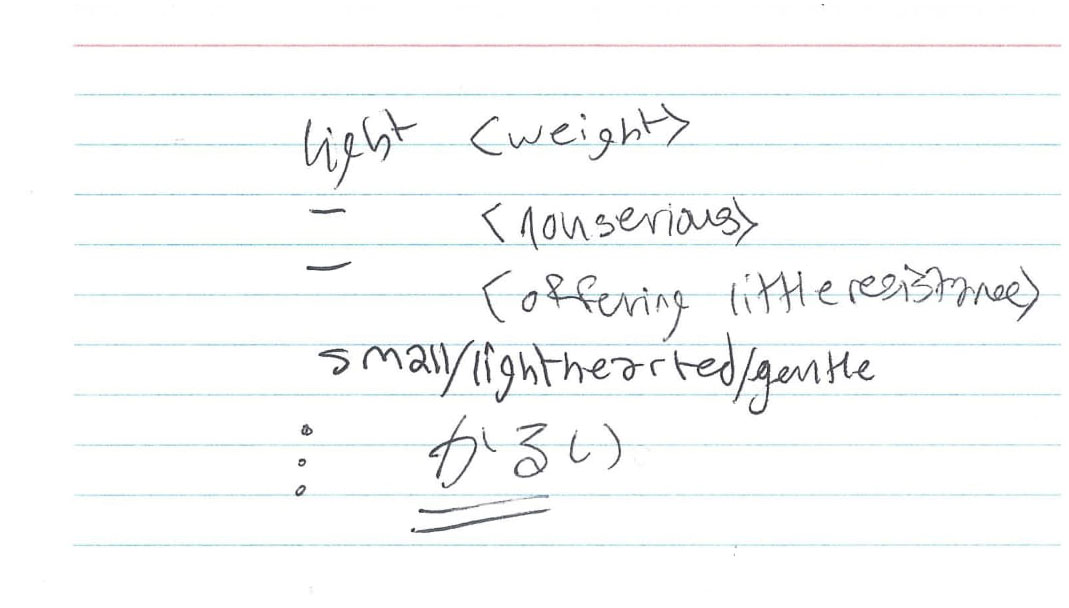 light <weight>
— <nonserious>
— <offering little resistance>
small/lighthearted/gentle
かるい